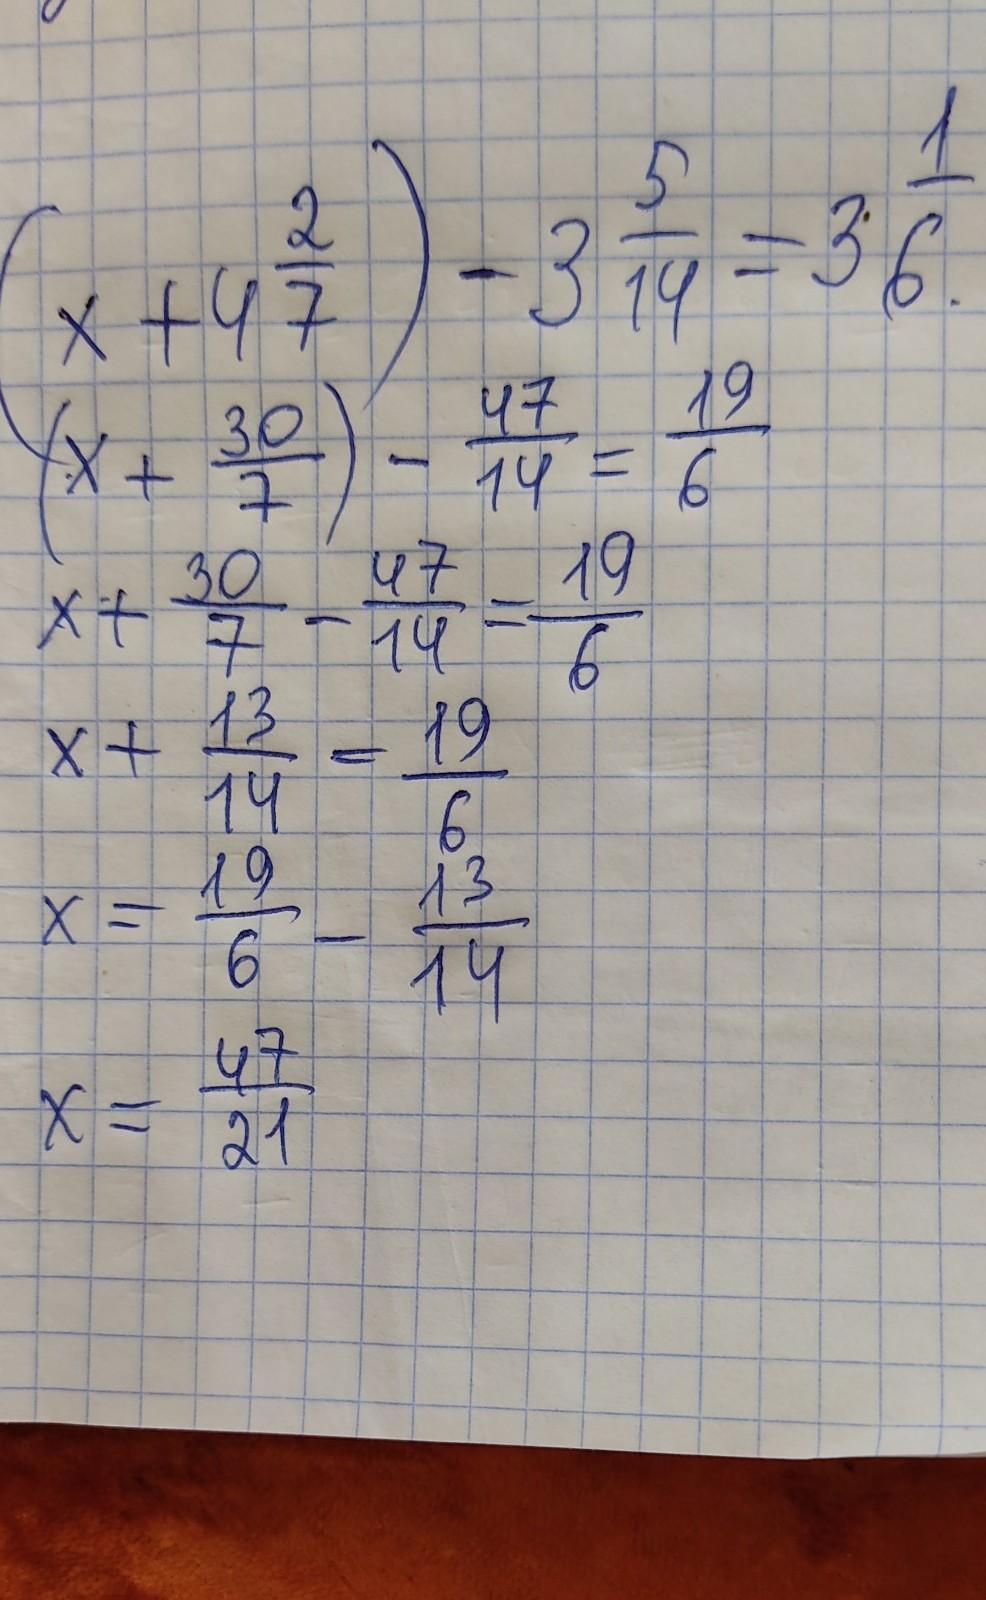 (x + 4 2/7) - 3 5/14 = 3 1/6.
(x + 30/7) - 47/14 = 19/6
x + 30/7 - 47/14 = 19/6
x + 13/14 = 19/6
x = 19/6 - 13/14
x = 47/21